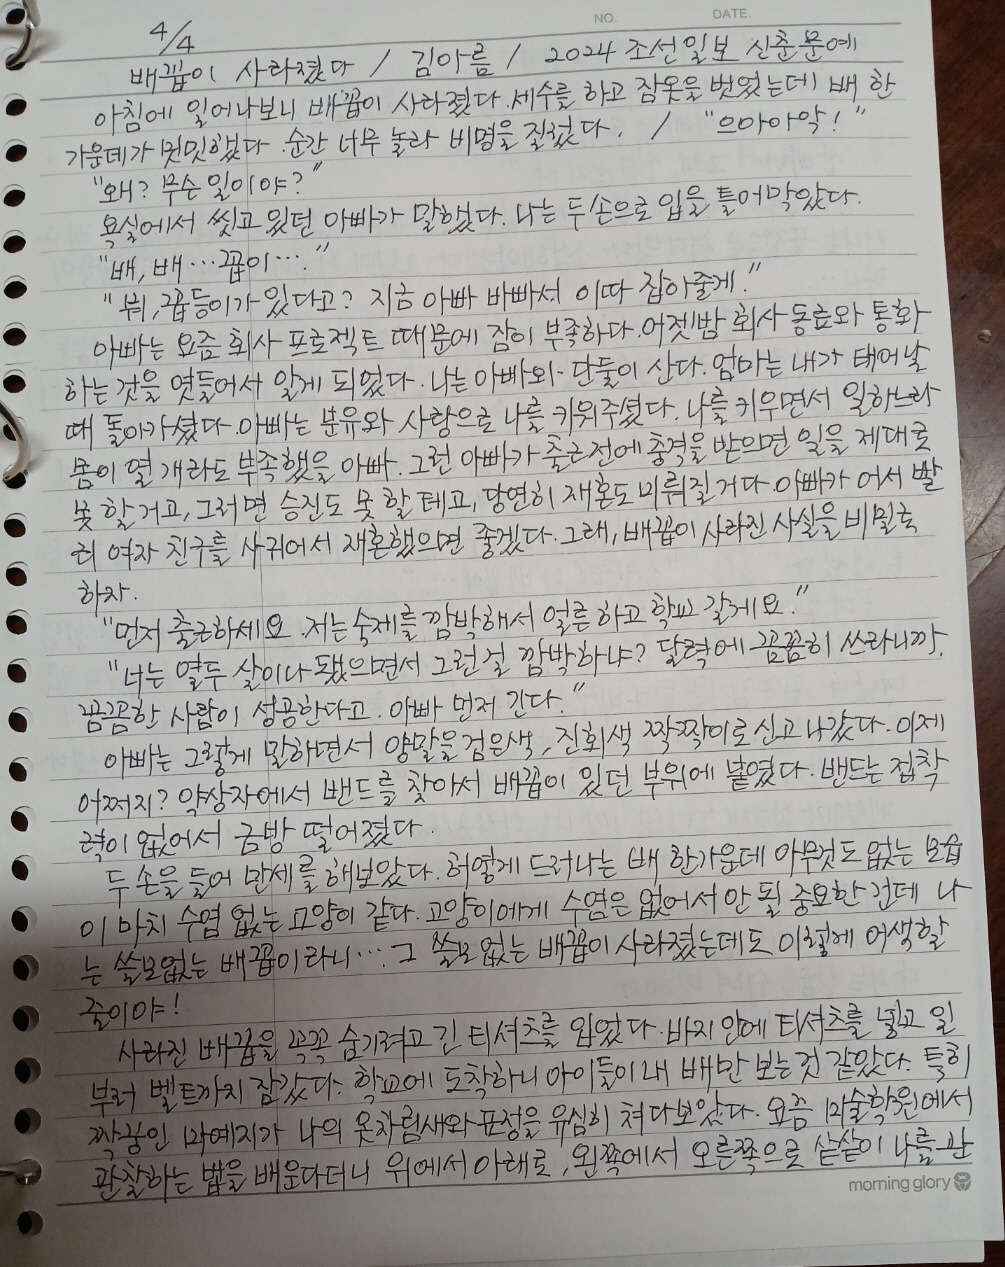 NO.
DATE.
4/4
배꼽이 사라졌다 / 김아름 / 2024 조선일보 신춘문예
아침에 일어나보니 배꼽이 사라졌다. 세수를 하고 잠옷을 벗었는데 배 한
가운데가 밋밋했다. 순간 너무 놀라 비명을 질렀다. / "으아아악!"
"왜? 무슨 일이야?"
욕실에서 씻고 있던 아빠가 말했다. 나는 두 손으로 입을 틀어막았다.
"배, 배…꼽이…."
"뭐, 꼽등이가 있다고? 지금 아빠 바빠서 이따 잡아줄게."
아빠는 요즘 회사 프로젝트 때문에 잠이 부족하다. 어젯밤 회사 동료와 통화
하는 것을 엿들어서 알게 되었다. 나는 아빠와 단둘이 산다. 엄마는 내가 태어날
때 돌아가셨다. 아빠는 분유와 사랑으로 나를 키워주셨다. 나를 키우면서 일하느라
몸이 열 개라도 부족했을 아빠. 그런 아빠가 출근 전에 충격을 받으면 일을 제대로
못 할 거고, 그러면 승진도 못 할 테고, 당연히 재혼도 미뤄질 거다. 아빠가 어서 빨
리 여자 친구를 사귀어서 재혼했으면 좋겠다. 그래, 배꼽이 사라진 사실을 비밀로
하자.
"먼저 출근하세요. 저는 숙제를 깜박해서 얼른 하고 학교 갈게요."
"너는 열두 살이나 됐으면서 그런 걸 깜박하냐? 달력에 꼼꼼히 쓰라니까.
꼼꼼한 사람이 성공한다고. 아빠 먼저 간다."
아빠는 그렇게 말하면서 양말을 검은색, 진회색 짝짝이로 신고 나갔다. 이제
어쩌지? 약상자에서 밴드를 찾아서 배꼽이 있던 부위에 붙였다. 밴드는 접착
력이 없어서 금방 떨어졌다.
두 손을 들어 만세를 해보았다. 허옇게 드러나는 배 한가운데 아무것도 없는 모습
이 마치 수염 없는 고양이 같다. 고양이에게 수염은 없어서 안 될 중요한 건데 나
는 쓸모없는 배꼽이라니… 그 쓸모없는 배꼽이 사라졌는데도 이렇게 어색할
줄이야!
사라진 배꼽을 꼭꼭 숨기려고 긴 티셔츠를 입었다. 바지 안에 티셔츠를 넣고 일
부러 벨트까지 잠갔다. 학교에 도착하니 아이들이 내 배만 보는 것 같았다. 특히
짝꿍인 마예지가 나의 옷차림새와 표정을 유심히 쳐다보았다. 요즘 미술학원에서
관찰하는 법을 배운다더니 위에서 아래로, 왼쪽에서 오른쪽으로 샅샅이 나를 관
morning glory